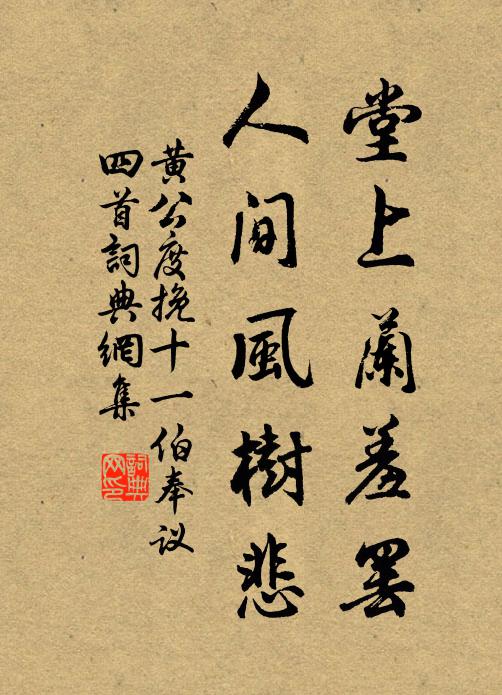 堂上蘭羞罷
人間風樹悲
黄公度挽十一伯奉议
四首詞典網集
詞典
网印